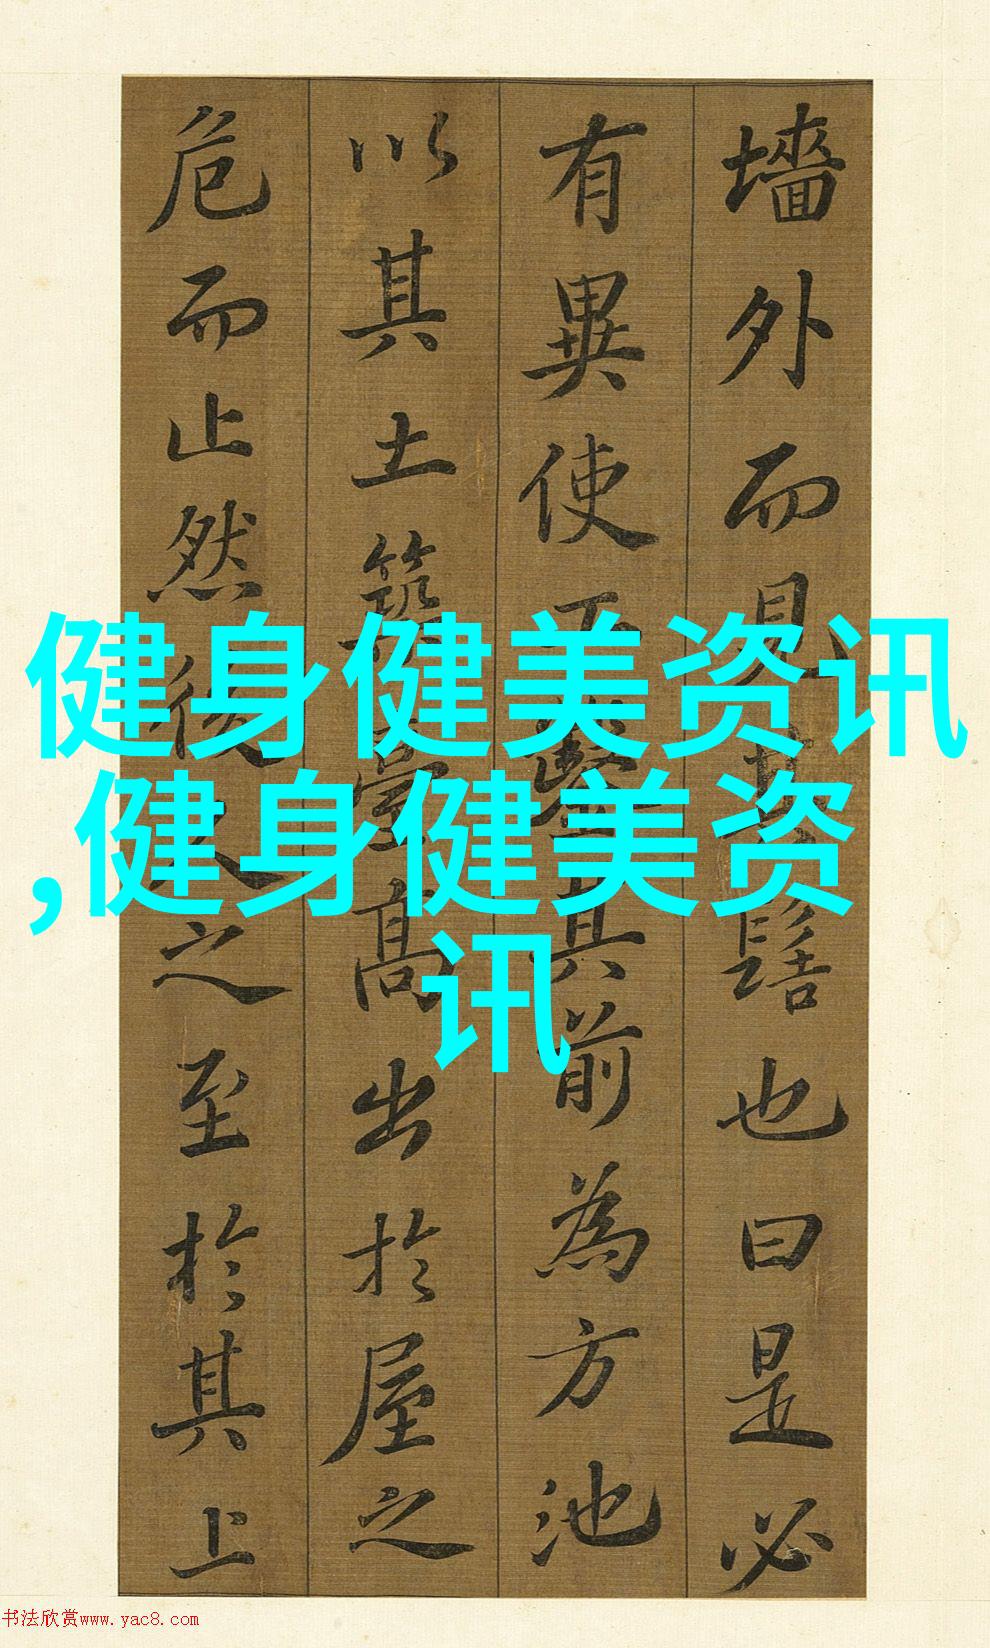 墻外而見其髻也曰是必
有異使工鑿其前為方池
以其土築臺高出於屋之
危而止然後人之至於其上
健身健美资讯
,健身健美资
讯
书法欣赏www.yac8.com